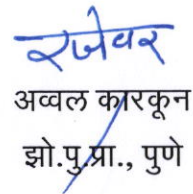 रजेवर
अव्वल कारकून
झो.पु.प्रा., पुणे